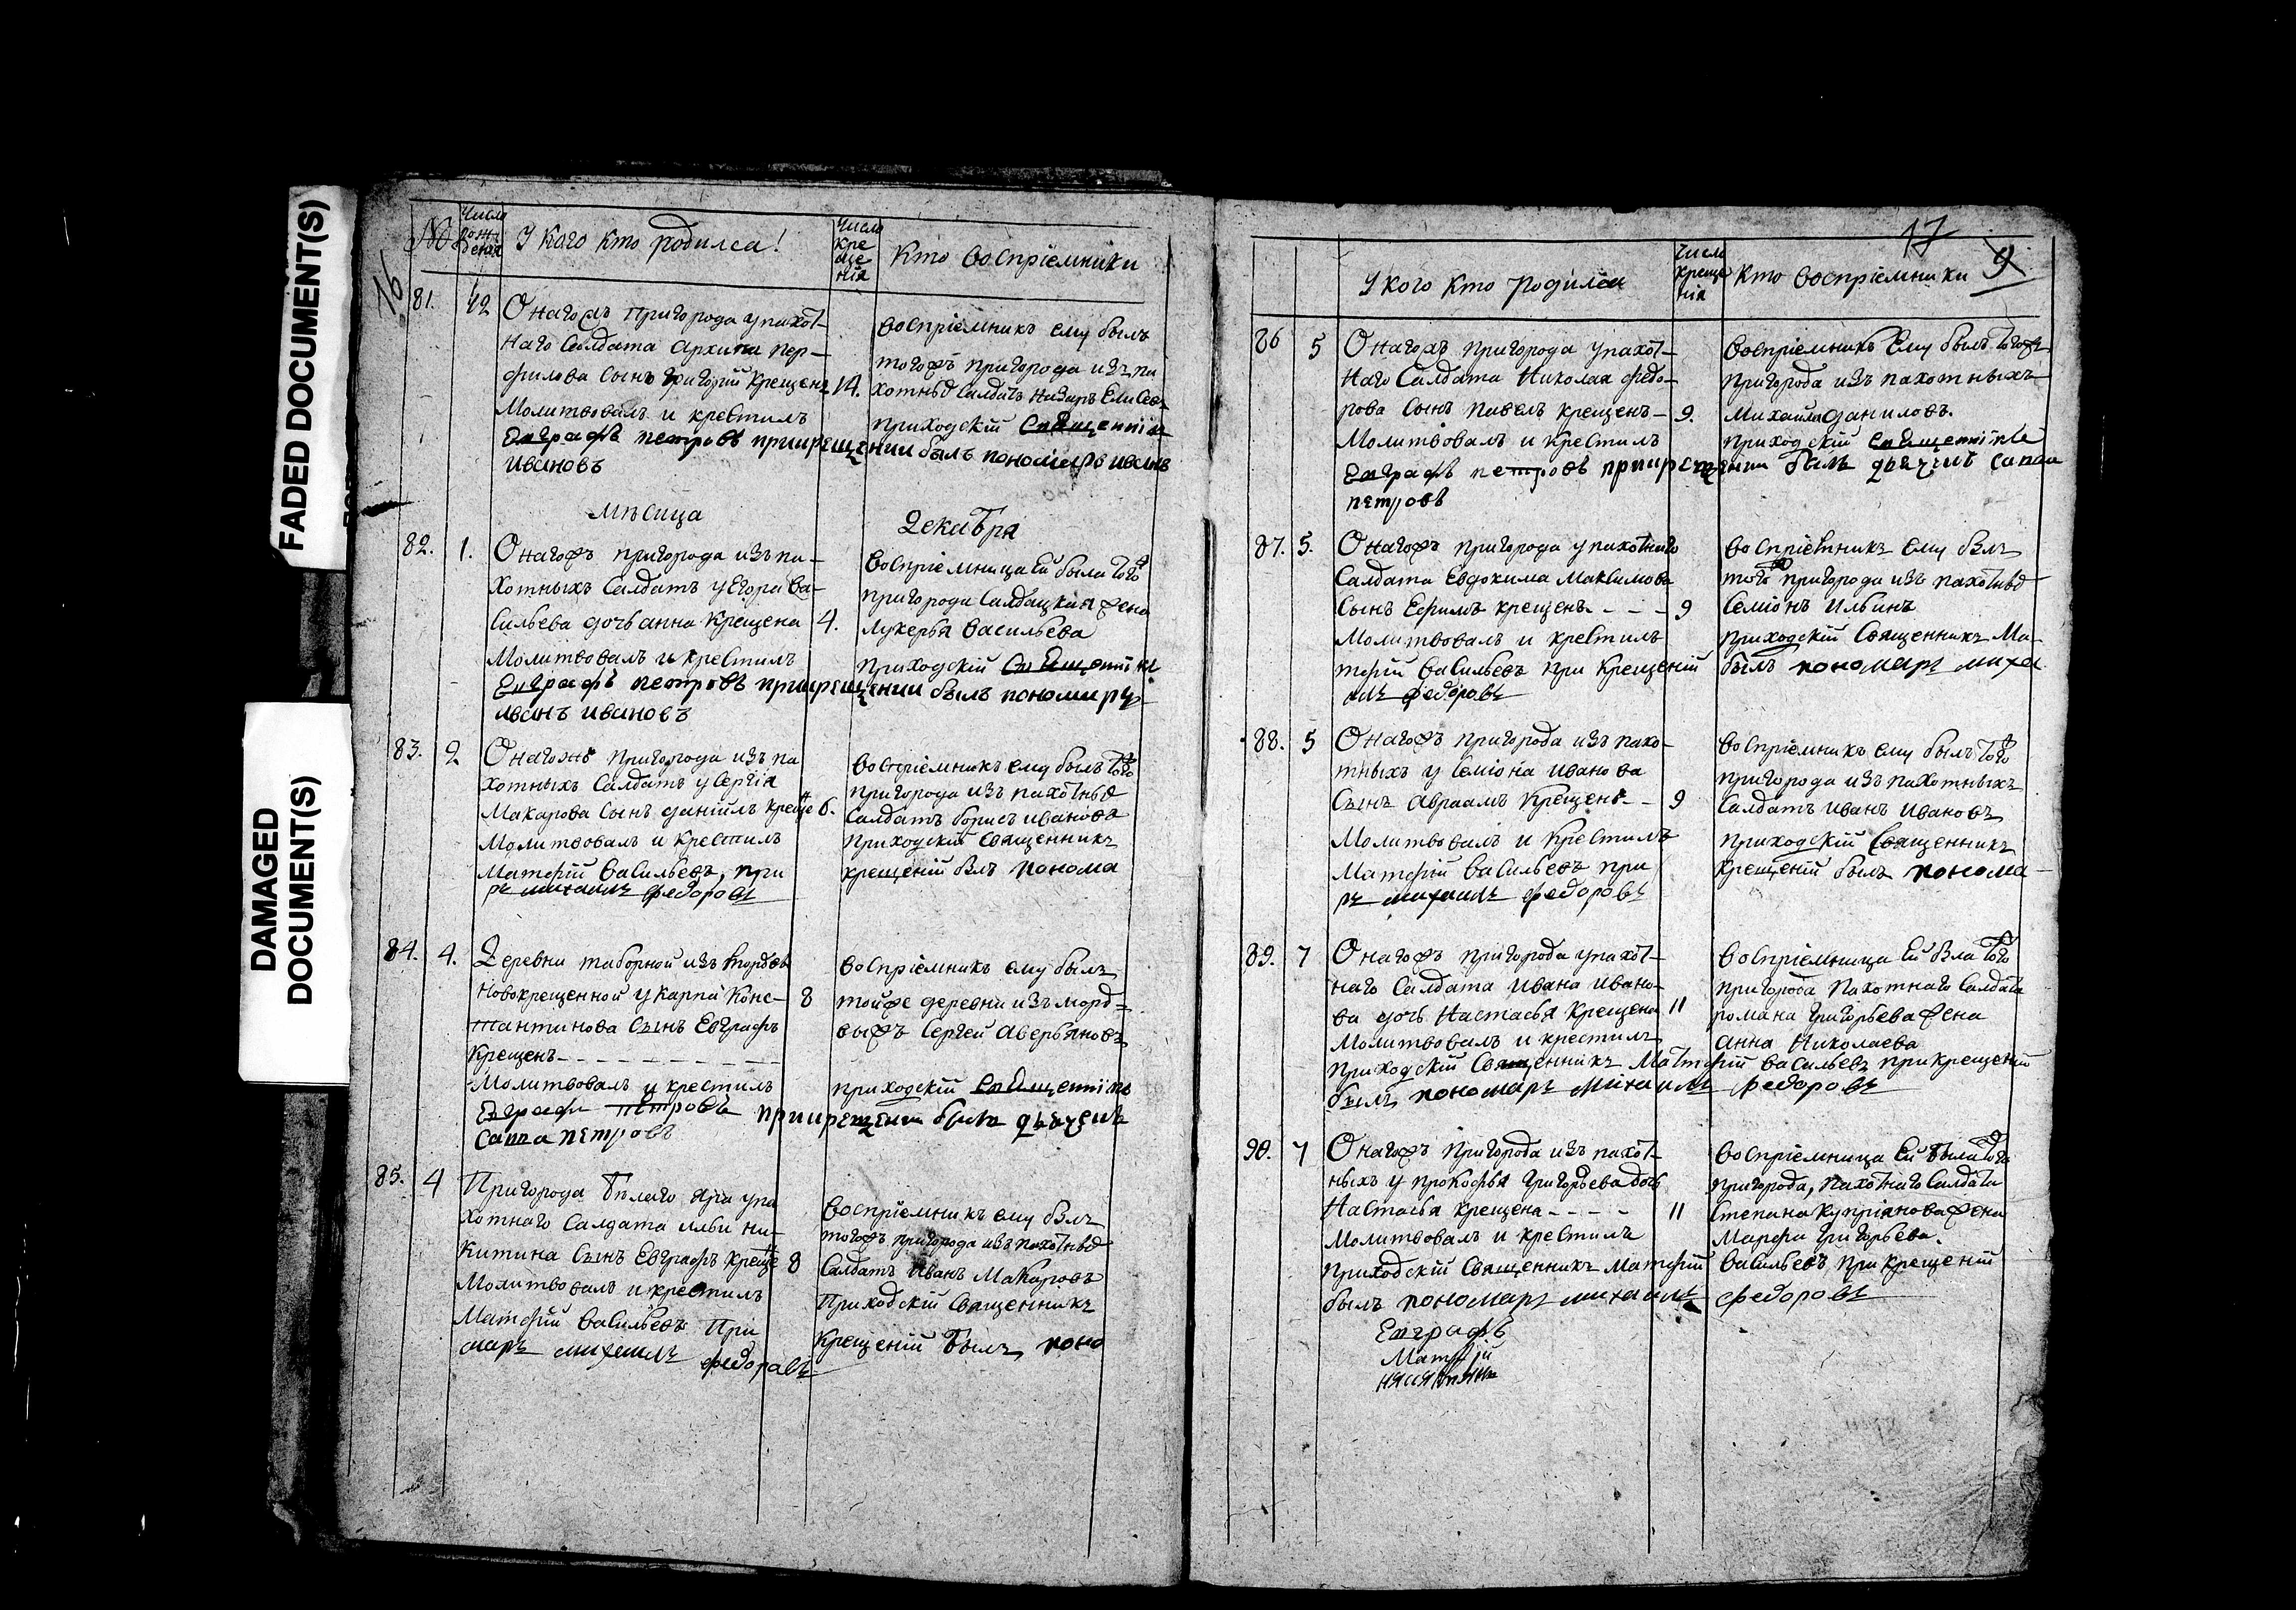 FADED DOCUMENT(S)
DAMAGED
DOCUMENT(S)
16
№
Число
рож
денія
У каго кто родился!
Число
кре
ще
нія
Кто восприемники
81. 12 Онагожъ Пригорода упахот-
наго Салдата Архипа пер-
филова Сынъ григорій Крещенъ 14.
Молитвовалъ и крестилъ
Евграфъ петровъ прикрещении былъ пономарь иванъ
ивановъ
восприемникъ ему былъ
тогожъ пригорода изъ па
хотныхъ Салдатъ Назаръ Елисеев
приходскій Священникъ
мѣсица Декабря
82. 1. Онагожъ пригорода изъ па-
хотныхъ Салдатъ у Егора ва-
сильева дочь анна крещена 4.
Молитвовалъ и крестилъ
Евграфъ петровъ прикрещении былъ пономарь
иванъ ивановъ
восприемница ей была того ж
пригорода Салдацкая жена
Лукерья васильева
приходскій Священникъ
83. 2 Онагожъ Пригорода изъ па
хотныхъ Салдатъ у Сергія
Макарова Сынъ даніилъ крещенъ 6.
Молитвовалъ и Крестилъ
Матфій васильевъ, при
ръ михаилъ федоровъ
восприемникъ ему былъ того ж
пригорода изъ пахотныхъ
Салдатъ борисъ ивановъ
приходскій Священникъ
крещеній былъ понома
84. 4. Деревни таборной изъ мордовъ
новокрещенной у карпа Конс- 8
тантинова Сынъ Евграфъ
Крещенъ- - - - - - - -
Молитвовалъ и крестилъ
Евграфъ петровъ прикрещении былъ дьячекъ
Савва петровъ
восприемникъ ему былъ
тойже деревни изъ морд=
выжъ Сергей Аверьяновъ
приходскій Священникъ
85. 4 Пригорода Бѣлаго Яра упа
хотнаго Салдата ильи ни-
китина Сынъ Евграфъ крещенъ 8
Молитвовалъ и крестилъ
Матфій васильевъ При
марь михаилъ федоровъ
восприемникъ ему былъ
тогожъ пригорода изъ пахотныхъ
Салдатъ Иванъ Макаровъ
Приходскій Священникъ
Крещеній былъ поно
17
9
У кого кто родился
Число
креще
нія
кто восприемники
86 5 Онагожъ пригорода упахот-
наго Салдата Николая федо-
рова Сынъ Павелъ крещенъ- 9.
Молитвовалъ и крестилъ
Евграфъ петровъ прикрещении былъ дьячекъ Савва
петровъ
восприемникъ ему былъ тогожъ
пригорода изъ пахотныхъ
Михайла даниловъ.
приходскій Священникъ
87. 5. Онагожъ пригорода упахотнаго
Салдата Евдокима Максимова
Сынъ Ефимъ крещенъ- - - 9
Молитвовалъ и крестилъ
тфій васильевъ при крещеній
илъ федоровъ
восприемникъ ему былъ
того ж пригорода изъ пахотныхъ
Семіонъ Ильинъ
приходскій Священникъ Ма-
былъ пономарь миха
88. 5 Онагожъ пригорода изъ пахо-
тныхъ у Семіона иванова
Сынъ Авраамъ Крещенъ- - 9
Молитвовалъ и крестилъ
Матфій васильевъ при
ръ михаилъ федоровъ
восприемникъ ему былъ того ж
пригорода изъ пахотныхъ
Салдатъ иванъ Ивановъ
приходскій Священникъ
крещеній былъ понома-
89. 7 Онагожъ пригорода упахот-
наго Салдата Ивана Ивано-
ва дочь Настасья крещена 11
Молитвовалъ и крестилъ
приходскій Священникъ Матфій васильевъ прикрещеній
былъ пономарь михаилъ федоровъ
восприемница ей была того ж
пригорода Пахотнаго Салдата
романа Григорьева жена
анна Николаева
90. 7 Онагожъ пригорода изъ пахот-
ныхъ у прокофья григорьева дочь
Настасья крещена- - - - 11
Молитвовалъ и крестилъ
приходскій Священникъ Матфій васильевъ, при крещеній
былъ пономарь михаилъ федоровъ
восприемница ей была того ж
пригорода, Пахотнаго Салдата
Степана Купріянова жена
Марфа григорьева.
Евграфъ
Матфій